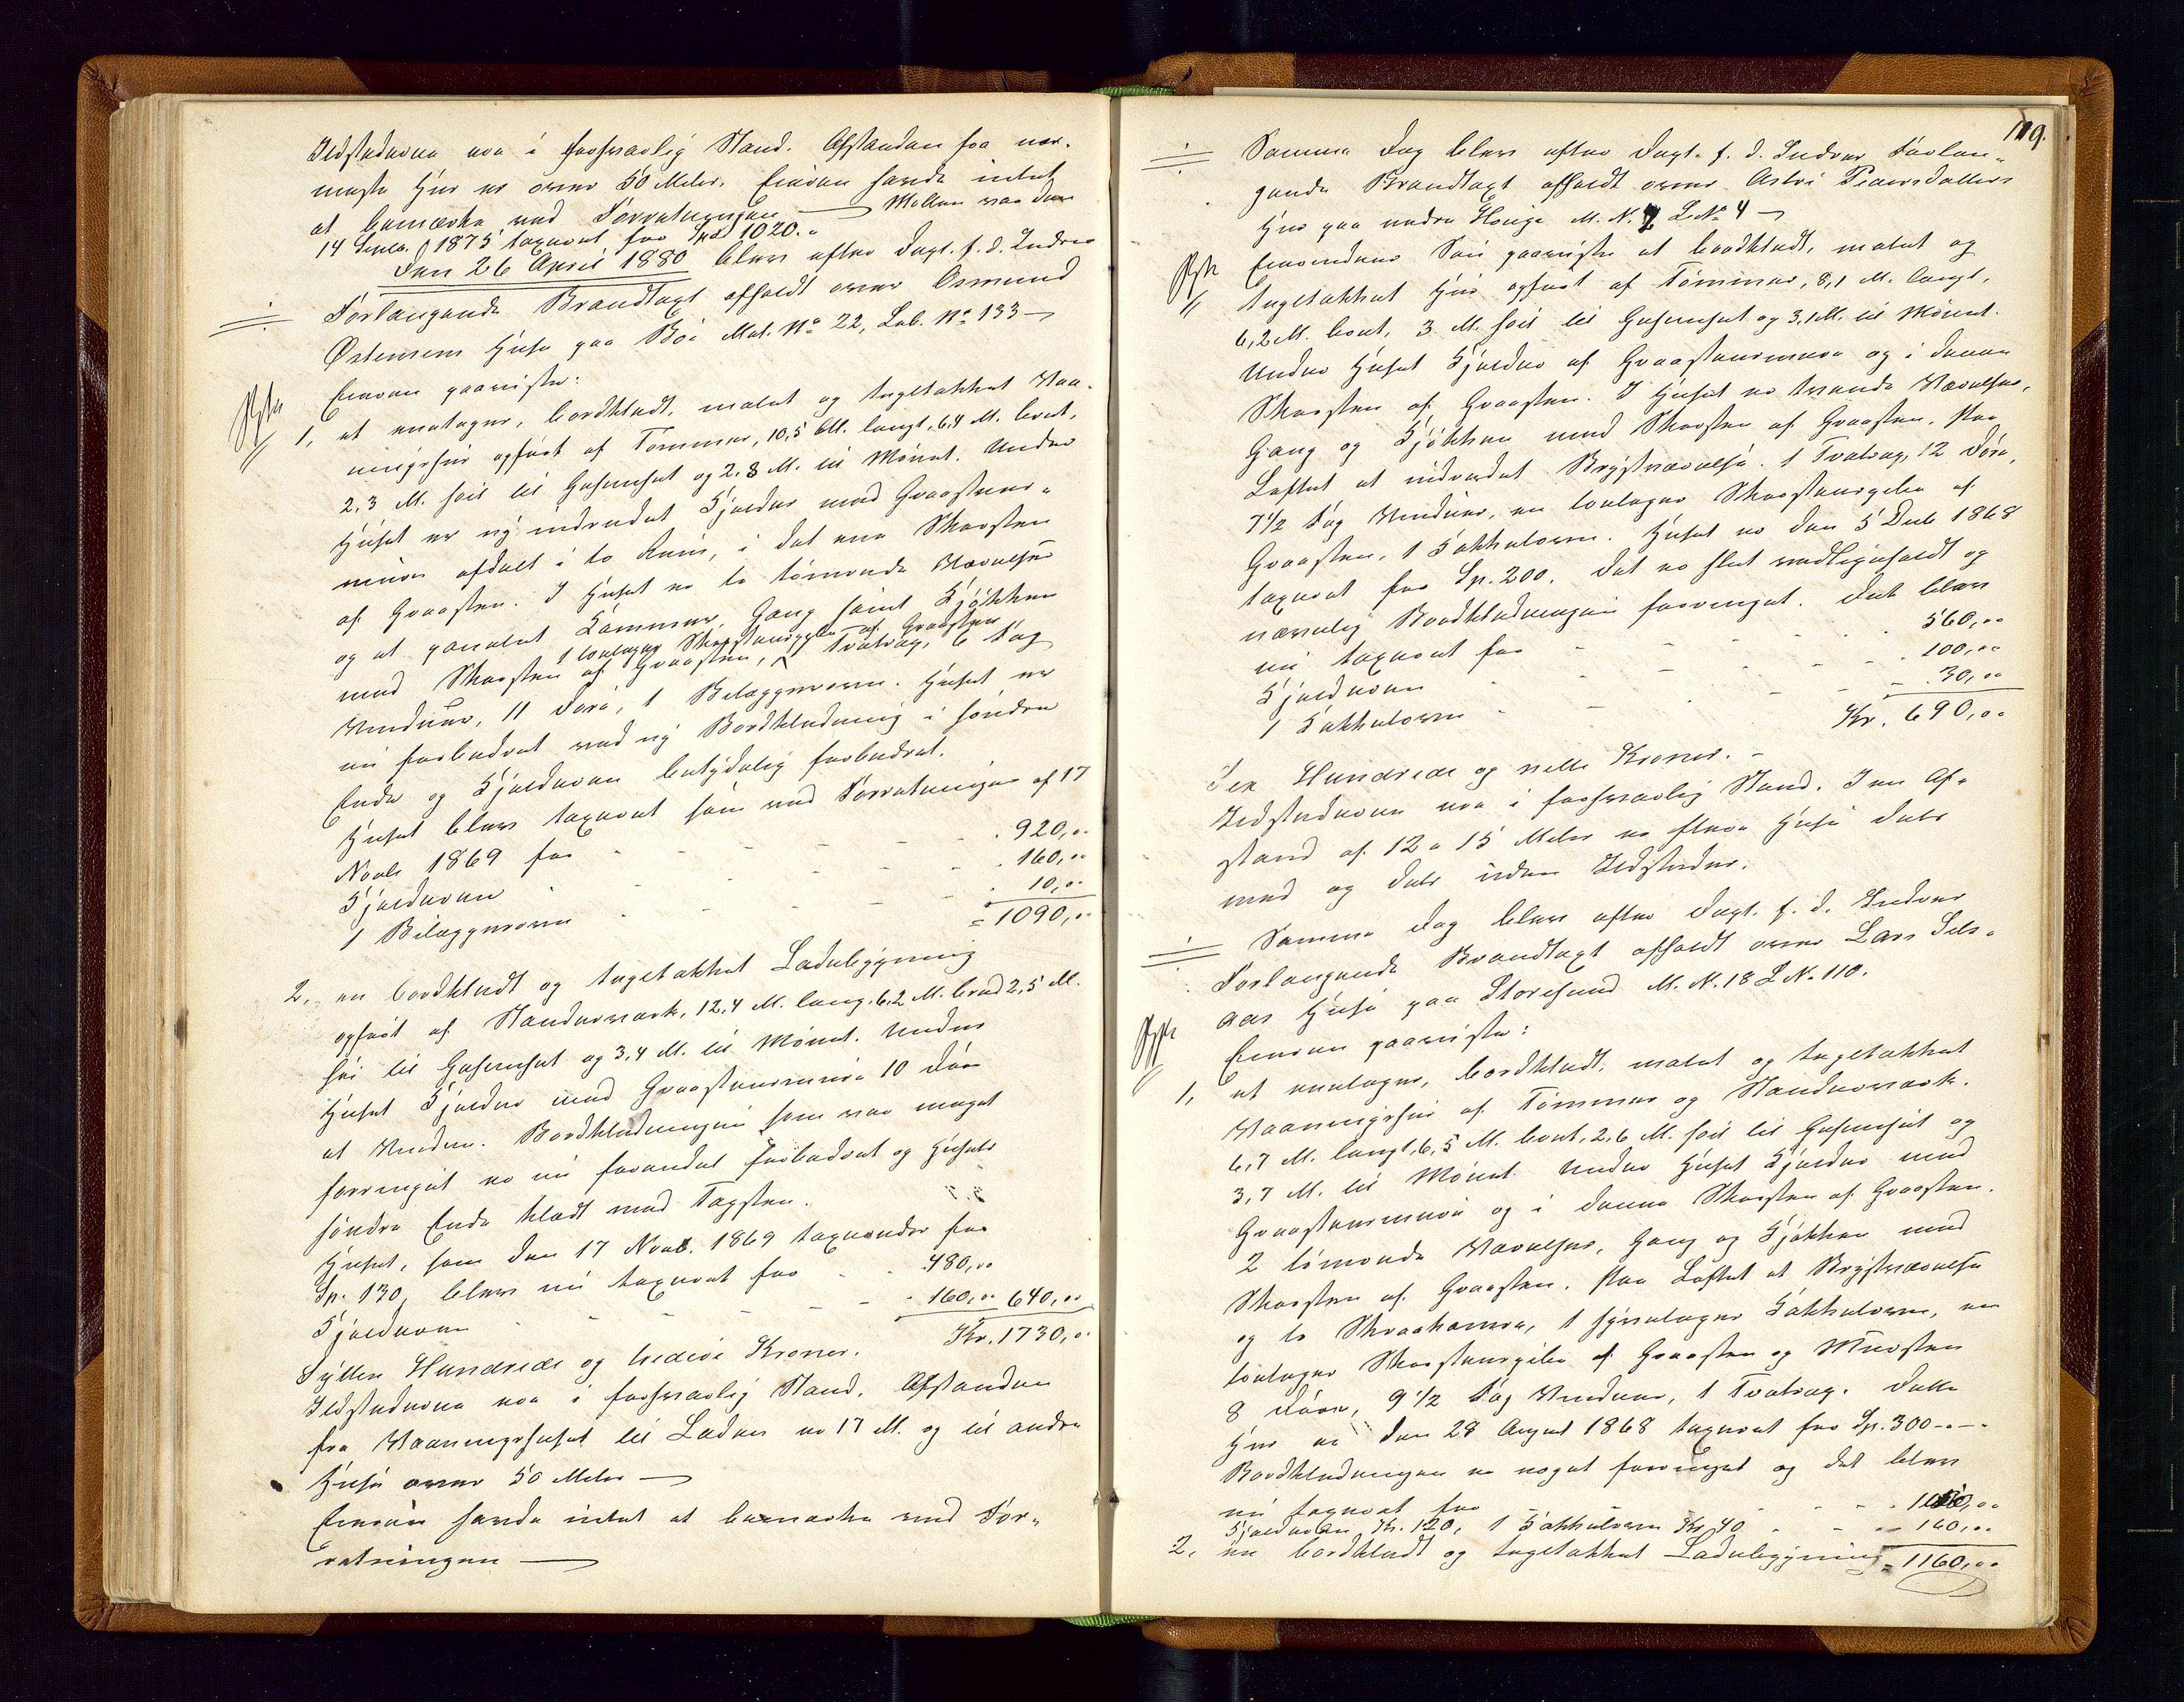 Ildstederne var i forsvarlig Stand. Afstanden fra nær-
meste Hus er over 50 Meter. Eieren havde intet
at bemærke ved Forretningen — Møllen var den
14 Septbr. 1875 taxeret for Spd 1020.
Den 26 April 1880 blev efter Dagl. f. d. Indres
Forlangende Brandtaxt afholdt over Osmund
Østensens Huse paa Bø Mat. No 22, Løb. No 133 —
Eieren paaviste:
1, et enetages, bordklædt, malet og tagtækket Vaa-
ningshus opført af Tømmer, 10,5 M. langt, 6,4 M. bredt,
2,3 M. høit til Gesimset og 2,8 M. til Mønet. Under
Huset er ny indredet Kjelder med Graastens-
mure afdelt i to Rum, i det ene Skorsten
af Graasten. I Huset er to tømrede Værelser
og et panelet Kammer, Gang samt Kjøkken
1 toetages Skorstenspibe af Graasten
med Skorsten af Graasten, Tvatrap, 6 Fag
Vinduer, 11 Døre, 1 Bilæggerovn. Huset er
nu forbedret ved ny Bordklædning i søndre
Ende og Kjelderen betydelig forbedret.
Huset blev taxeret som ved Forretningen af 17
Novbr 1869 for - - - - 920,00
Kjelderen - - - - 160,00
1 Bilæggerovn - - - 10,00
= 1090,00
2, en bordklædt og tagtækket Ladebygning
opført af Standerværk, 12,4 M. lang, 6,2 M. bred 2,5 M.
høi til Gesimset og 3,4 M. til Mønet. Under
Huset Kjelder med Graastensmure 10 Døre
et Vindue. Bordklædningen som var meget
forringet er nu forandret forbedret og Husets
søndre Ende klædt med Tagsten.
Huset, som den 17 Novb. 1869 taxeredes for
Sp. 130, blev nu taxeret for - - 480,00
Kjelderen - - - - 160,00 640,00
Kr. 1730,00
Sytten Hundrede og tredive Kroner.
Ildstederne var i forsvarlig Stand. Afstanden
fra Vaaningshuset til Laden er 17 M. og til andre
Huse over 50 Meter —
Eieren havde intet at bemærke ved For-
retningen —
119.
Samme Dag blev efter Dagl. f. d. Indres Forlan-
gende Brandtaxt afholdt over Astri Peersdatters
Hus paa nedre Hauge M. N. 2 L. No 4 —
Eierindens Søn paaviste et bordklædt, malet og
tagtækket Hus opført af Tømmer, 8,1 M. langt,
6,2 M. bredt, 3 M. høit til Gesimset og 3,1 M. til Mønet.
Under Huset Kjelder af Graastensmure og i denne
Skorsten af Graasten. I Huset er tvende Værelser,
Gang og Kjøkken med Skorsten af Graasten. Paa
Loftet et indredet Brystværelse. 1 Tvatrap, 12 Døre,
7 1/2 Fag Vinduer, en toetages Skorstenspibe af
Graasten, 1 Kakkelovn. Huset er den 5 Decb 1868
taxeret for Sp. 200. Det er slet vedligeholdt og
nævnlig Bordklædningen forringet. Det blev
nu taxeret for - - - - 560,00
Kjelderen - - - - 100,00
1 Kakkelovn - - - - 30,00
Kr. 690,00
Sex Hundrede og nitti Kroner. -
Ildstederne var i forsvarlig Stand. I en Af-
stand af 12 a 15 Meter er flere Huse dels
med og dels uden Ildsteder.
Samme Dag blev efter Dagl. f. d. Indres
Forlangende Brandtaxt afholdt over Lars Sels-
aas Huse paa Storesund M. N. 18 L N. 110.
Eieren paaviste:
1, et enetages, bordklædt, malet og tagtækket
Vaaningshus af Tømmer og Standerværk.
6,7 M. langt, 6,5 M. bredt, 2,6 M. høit til Gesimset og
3,7 M. til Mønet. Under Huset Kjelder med
Graastensmure og i denne Skorsten af Graasten.
2 tømrede Værelser, Gang og Kjøkken med
Skorsten af Graasten. Paa Loftet et Brystværelse
og to Skraakamre, 1 Kakkelovn, en
toetages Skorstenspibe af Graasten og Mursten
8 Døre, 9 1/2 Fag Vinduer, 1 Tvatrap. Dette
Hus er den 28 August 1868 taxeret for Sp. 300 - -
Bordklædningen er noget forringet og det blev
nu taxeret for - - - - 1000,00
Kjelderen Kr. 120, 1 Kakkelovn Kr 40 - - 160,00
2, en bordklædt og tagtækket Ladebygning = 1160,00